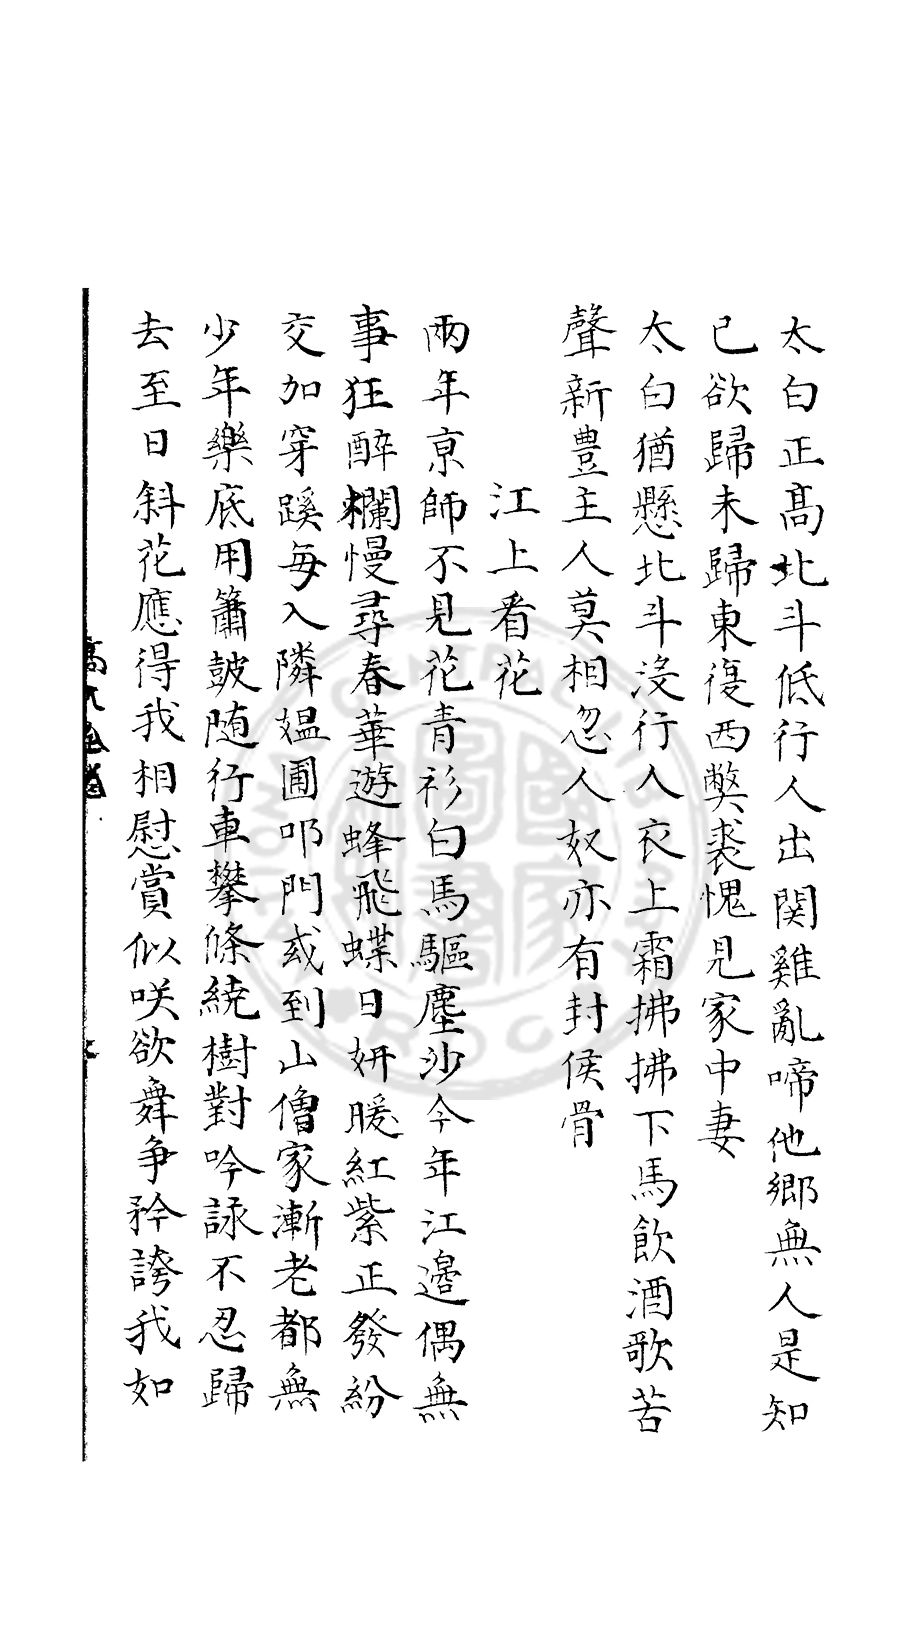 太白正髙北斗低行人出関雞亂啼他鄉無人是知
已欲歸未歸東復西獘裘愧見家中妻
太白猶懸北斗沒行人衣上霜拂拂下馬飲酒歌苦
聲新豊主人莫相忽人奴亦有封侯骨
江上看花
兩年京師不見花青衫白馬驅塵沙今年江邊偶無
事狂醉爛慢尋春華遊蜂飛蝶日妍暖紅紫正發紛
交加穿蹊每入隣媪圃叩門或到山僧家漸老都無
少年樂底用簫皷随行車攀條繞樹對吟詠不忍歸
去至日斜花應得我相慰賞似咲欲舞争矜誇我如